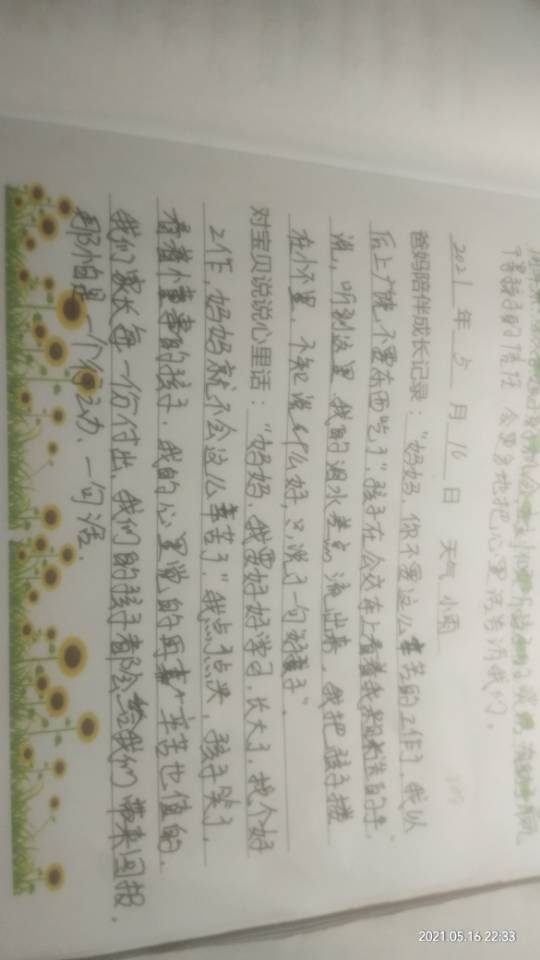 得孩子的信任 会更多地把心里话告诉我们.
2021 年 5 月 16 日 天气 小雨
爸妈陪伴成长记录：“妈妈，你不要这么辛苦的工作了，我以
后上厂陡 不要东西吃了”孩子在公交车上看着我
说，听到这里 我的泪水差点流出来，我把孩子搂
在怀里，不知说什么好，只说了一句“好孩子”.
对宝贝说说心里话：“妈妈，我要好好学习，长大了，找个好
工作，妈妈就不会这么辛苦了”我点了点头，孩子笑了，
看着懂事的孩子，我的心里觉的再辛苦也值的.
我们家长每一份付出，我们的孩子都会给我们带来回报.
那怕是一个行动、一句话.
2021.05.16 22:33